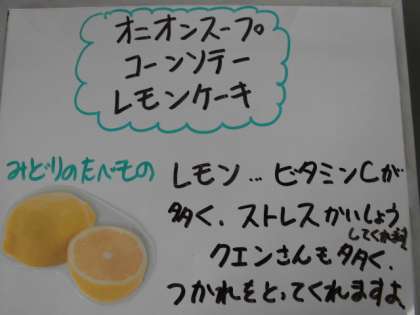 オニオンスープ
コーンソテー
レモンケーキ
みどりのたべもの
レモン…ビタミンCが
多く、ストレスかいしょう
してくれます
クエンさんも多く、
つかれをとってくれますよ